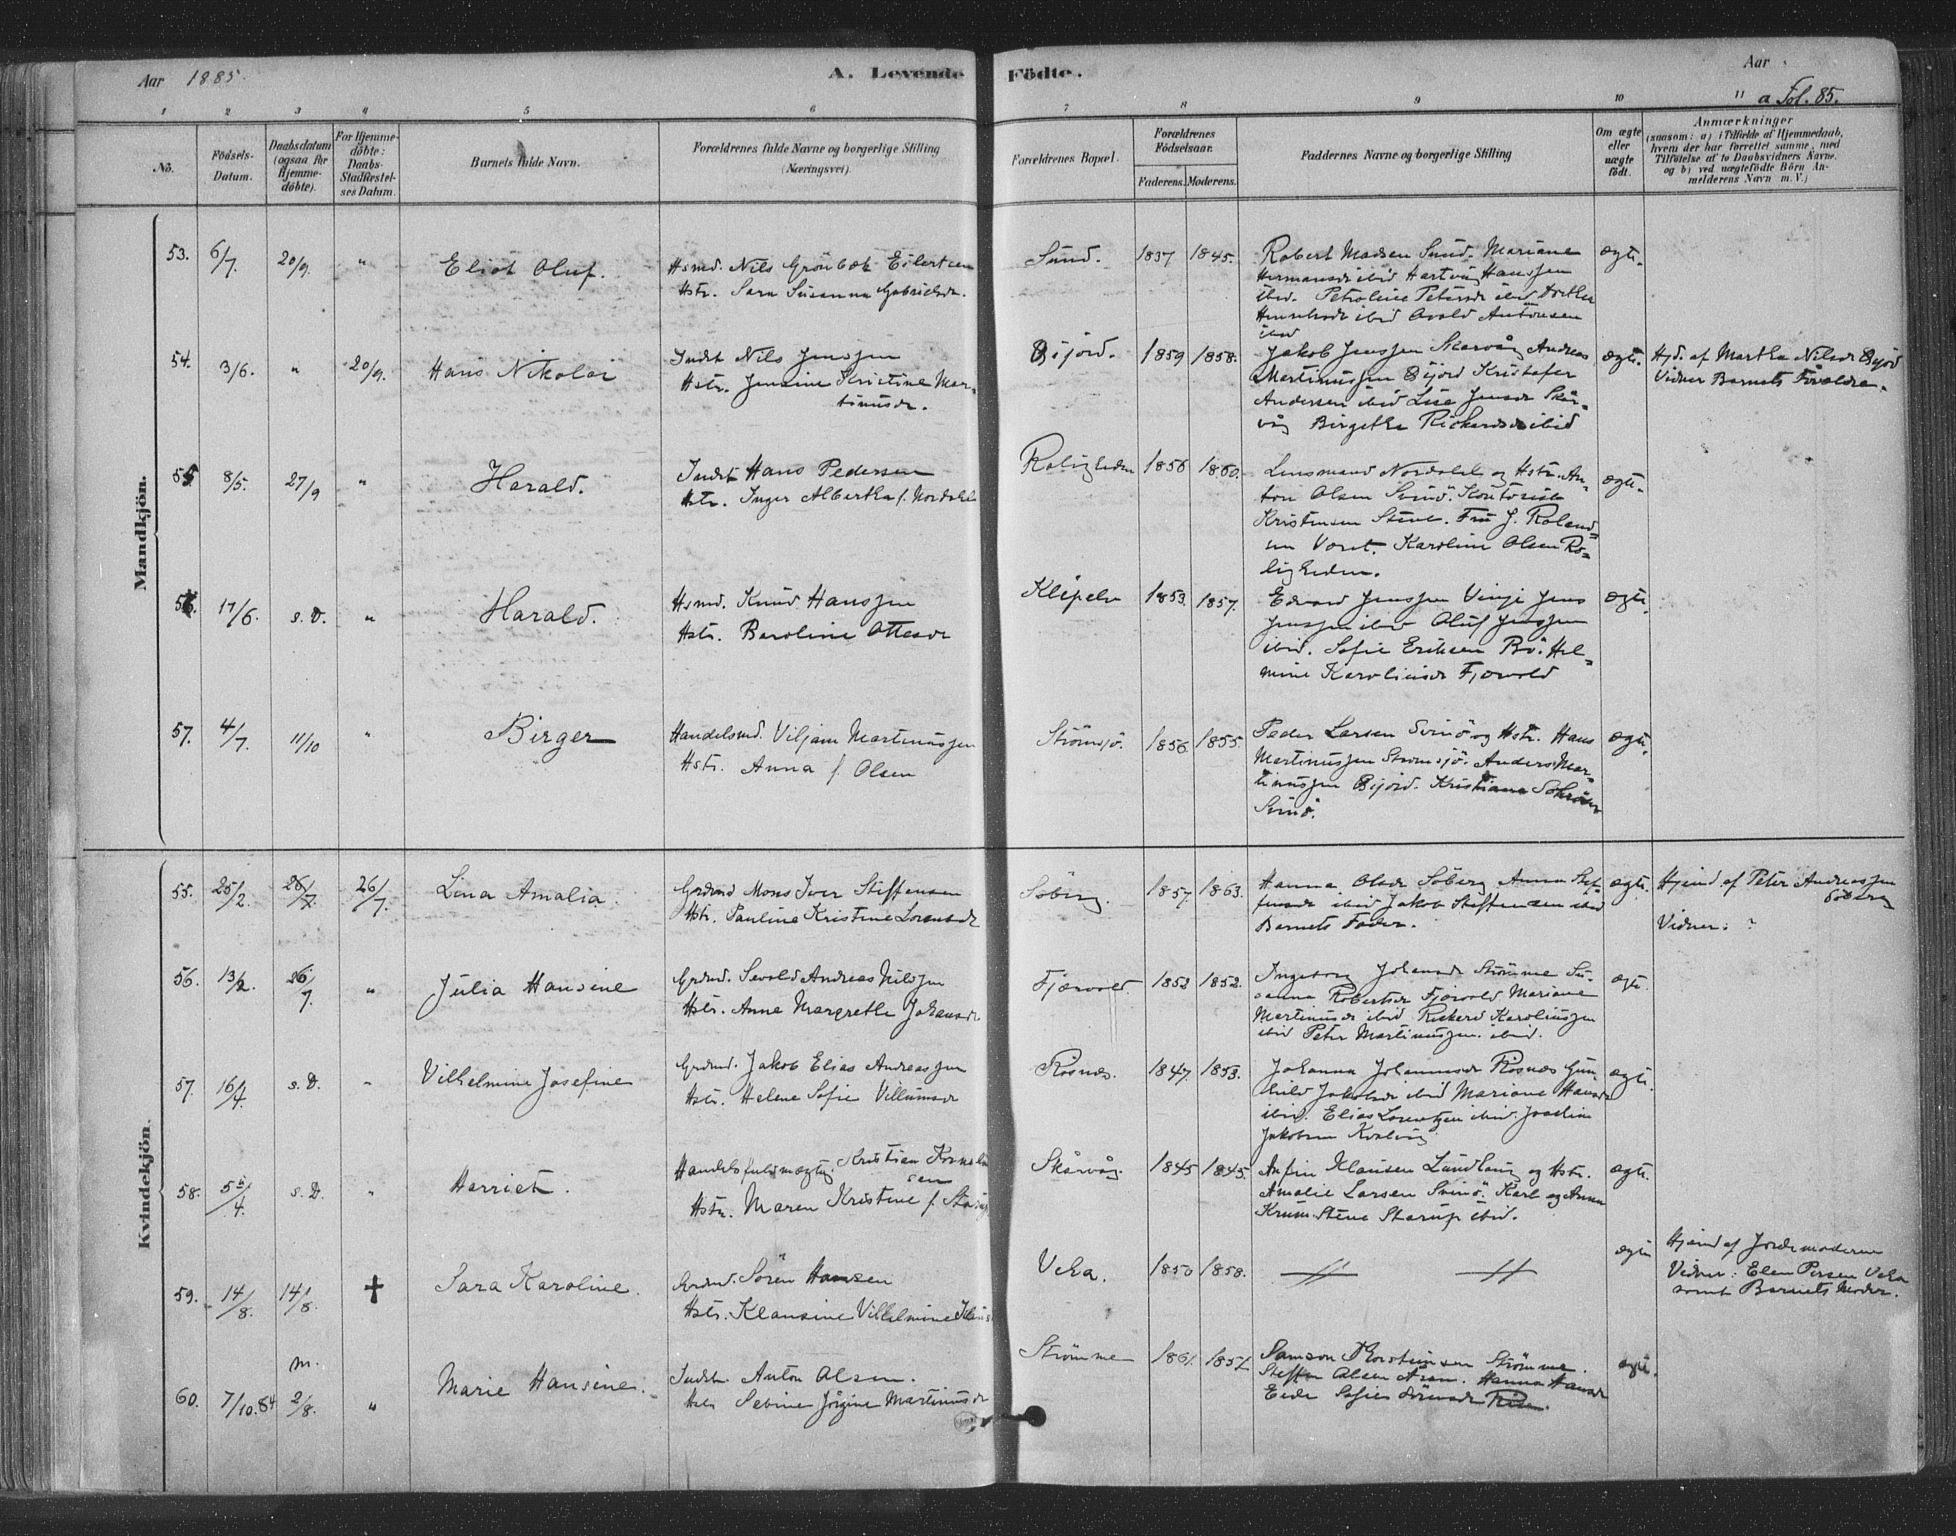 Aar 1885.
A. Levende Födte.
Aar
a Fol. 85.
1 2 3 4 5 6 7 8 9 10 11
No.
Födsels-Datum.
Daabsdatum (ogsaa for Hjemme-döbte).
For Hjemme-döbte: Daabs-Stadfæstel-ses Datum.
Barnets fulde Navn.
Forældrenes fulde Navne og borgerlige Stilling (Næringsvei).
Forældrenes Bopæl.
Forældrenes Födselsaar.
Faderens. Moderens.
Faddernes Navne og borgerlige Stilling
Om ægte eller uægte födt.
Anmærkninger
(saasom: a) i Tilfælde af Hjemmedaab,
hvem der har forrettet samme, med
Tilföielse af to Daabsvidners Navne,
og b) ved uægtefödte Börn An-
melderens Navn m. V.)
Mandkjön.
53. 6/7. 20/9. " Eliot Oluf.
Hsmd. Nils Grönbæk Eilertsen
Hstr. Sara Susanna Gabrielsdr.
Sund. 1837 1845.
Robert Madsen Sund. Mariane
Hermansdr ibid Hartvig Hanssen
ibid. Petroline Petersdr ibid Dorthea
ibid Avald Antonsen
ibid
ægte.
54. 3/6. " 20/9. Hans Nikolai
Indst Nils Jenssen
Hstr. Jensine Kristine Mar-
tinusdr.
Bijord. 1859 1858.
Jakob Jenssen Skarvåg Andreas
Martinussen Bijord Kristofer
Andersen ibid Lise Jensdr Skar-
våg Birgithe Rickardsdr ibid
ægte.
Hjd. af Martha Nilsdr Bijord
Vidner Barnets Forældre.
55. 8/5. 27/9 " Harald.
Indst Hans Pedersen
Hstr. Inger Albertha f. Nordahl
Roligheden 1856 1860.
Lensmand Nordahl og Hstr. An-
ton Olsen Svinö. Kontorist
Kristensen Stene. Fru J. Roland-
sen Voret. Karoline Olsen Ro-
ligheden.
ægte.
56. 17/6. s. D. " Harald.
Hsmd. Knud Hanssen
Hstr. Beroline Ottesdr
Klipeln 1853. 1857.
Edvard Jenssen Vinje Jens
Jenssen ibid Oluf Jenssen
ibid. Sofie Eriksen Bö. Hel-
mine Karoliusdr Fjærvold
ægte.
57. 4/7. 11/10 " Birger
Handelsmd. Viljam Martinussen
Hstr. Anna f. Olsen
Strömsjö. 1856 1855.
Peder Larsen Svinö og Hstr. Hans
Martinussen Strömsjö. Anders Mar-
tinussen Bijord. Kristiane Schröder
Svinö.
ægte.
Kvindekjön.
55. 25/2. 26/7. 26/7. Lina Amalia.
Grdmd Mons Iver Steffensen
Hstr. Pauline Kristine Lorensdr
Söberg. 1857. 1863.
Hanna Olsdr Söberg Anna Stef-
fensdr ibid Jakob Steffensen ibid
Barnets Fader.
ægte.
Hjemd af Peter Andreassen
Söberg
Vidner: ?
56. 13/2. 26/7. " Julia Hansine
Grdmd. Sevald Andreas Nilssen
Hstr. Anne Margrethe Johansdr
Fjærvold 1852 1852.
Ingeborg Johansdr Strömme Su-
sanna Robertsdr Fjærvold Mariane
Martinusdr ibid Rickard Karoliussen
ibid Peter Martinussen ibid.
ægte.
57. 16/4. s. D. " Vilhelmine Josefine
Grdmd. Jakob Elias Andreassen
Hstr. Helene Sofie Villumsdr
Rösnæs. 1847. 1853.
Johanna Johannesdr Rösnæs Gun-
hild Jakobsdr ibid Mariane Hansdr
ibid. Elias Lorentzen ibid. Joachim
Jakobsen Kvalvig
ægte.
58. 5/4. s. D. " Harriet.
Handelsfuldmægtig Kristian Kornelius-
sen
Hstr. Maren Kristine f. Starup
Skarvåg. 1845 1845.
Anfin Klausen Lundlang og Hstr.
Amalie Larsen Svinö. Karl og Anna
Krum. Stene Starup ibid.
ægte.
59. 14/8. 14/8. † Sara Karoline.
Grdmd. Sören Hansen
Hstr. Klausine Vilhelmine
Veka. 1850 1858.
— // — — // —
ægte
Hjemd af Jordemoderen
Vidner: Elen Persen Veka
samt Barnets Moder.
60. 7/10.84 m. 2/8. " Marie Hansine.
Indst. Anton Olsen.
Hstr Sebine Jörgine Martinusdr
Strömme 1861. 1857.
Samson Thorsteinsen Strömme.
Steffen Olsen Hanna Hansdr
Eide Sofie Sörensdr
ægte.